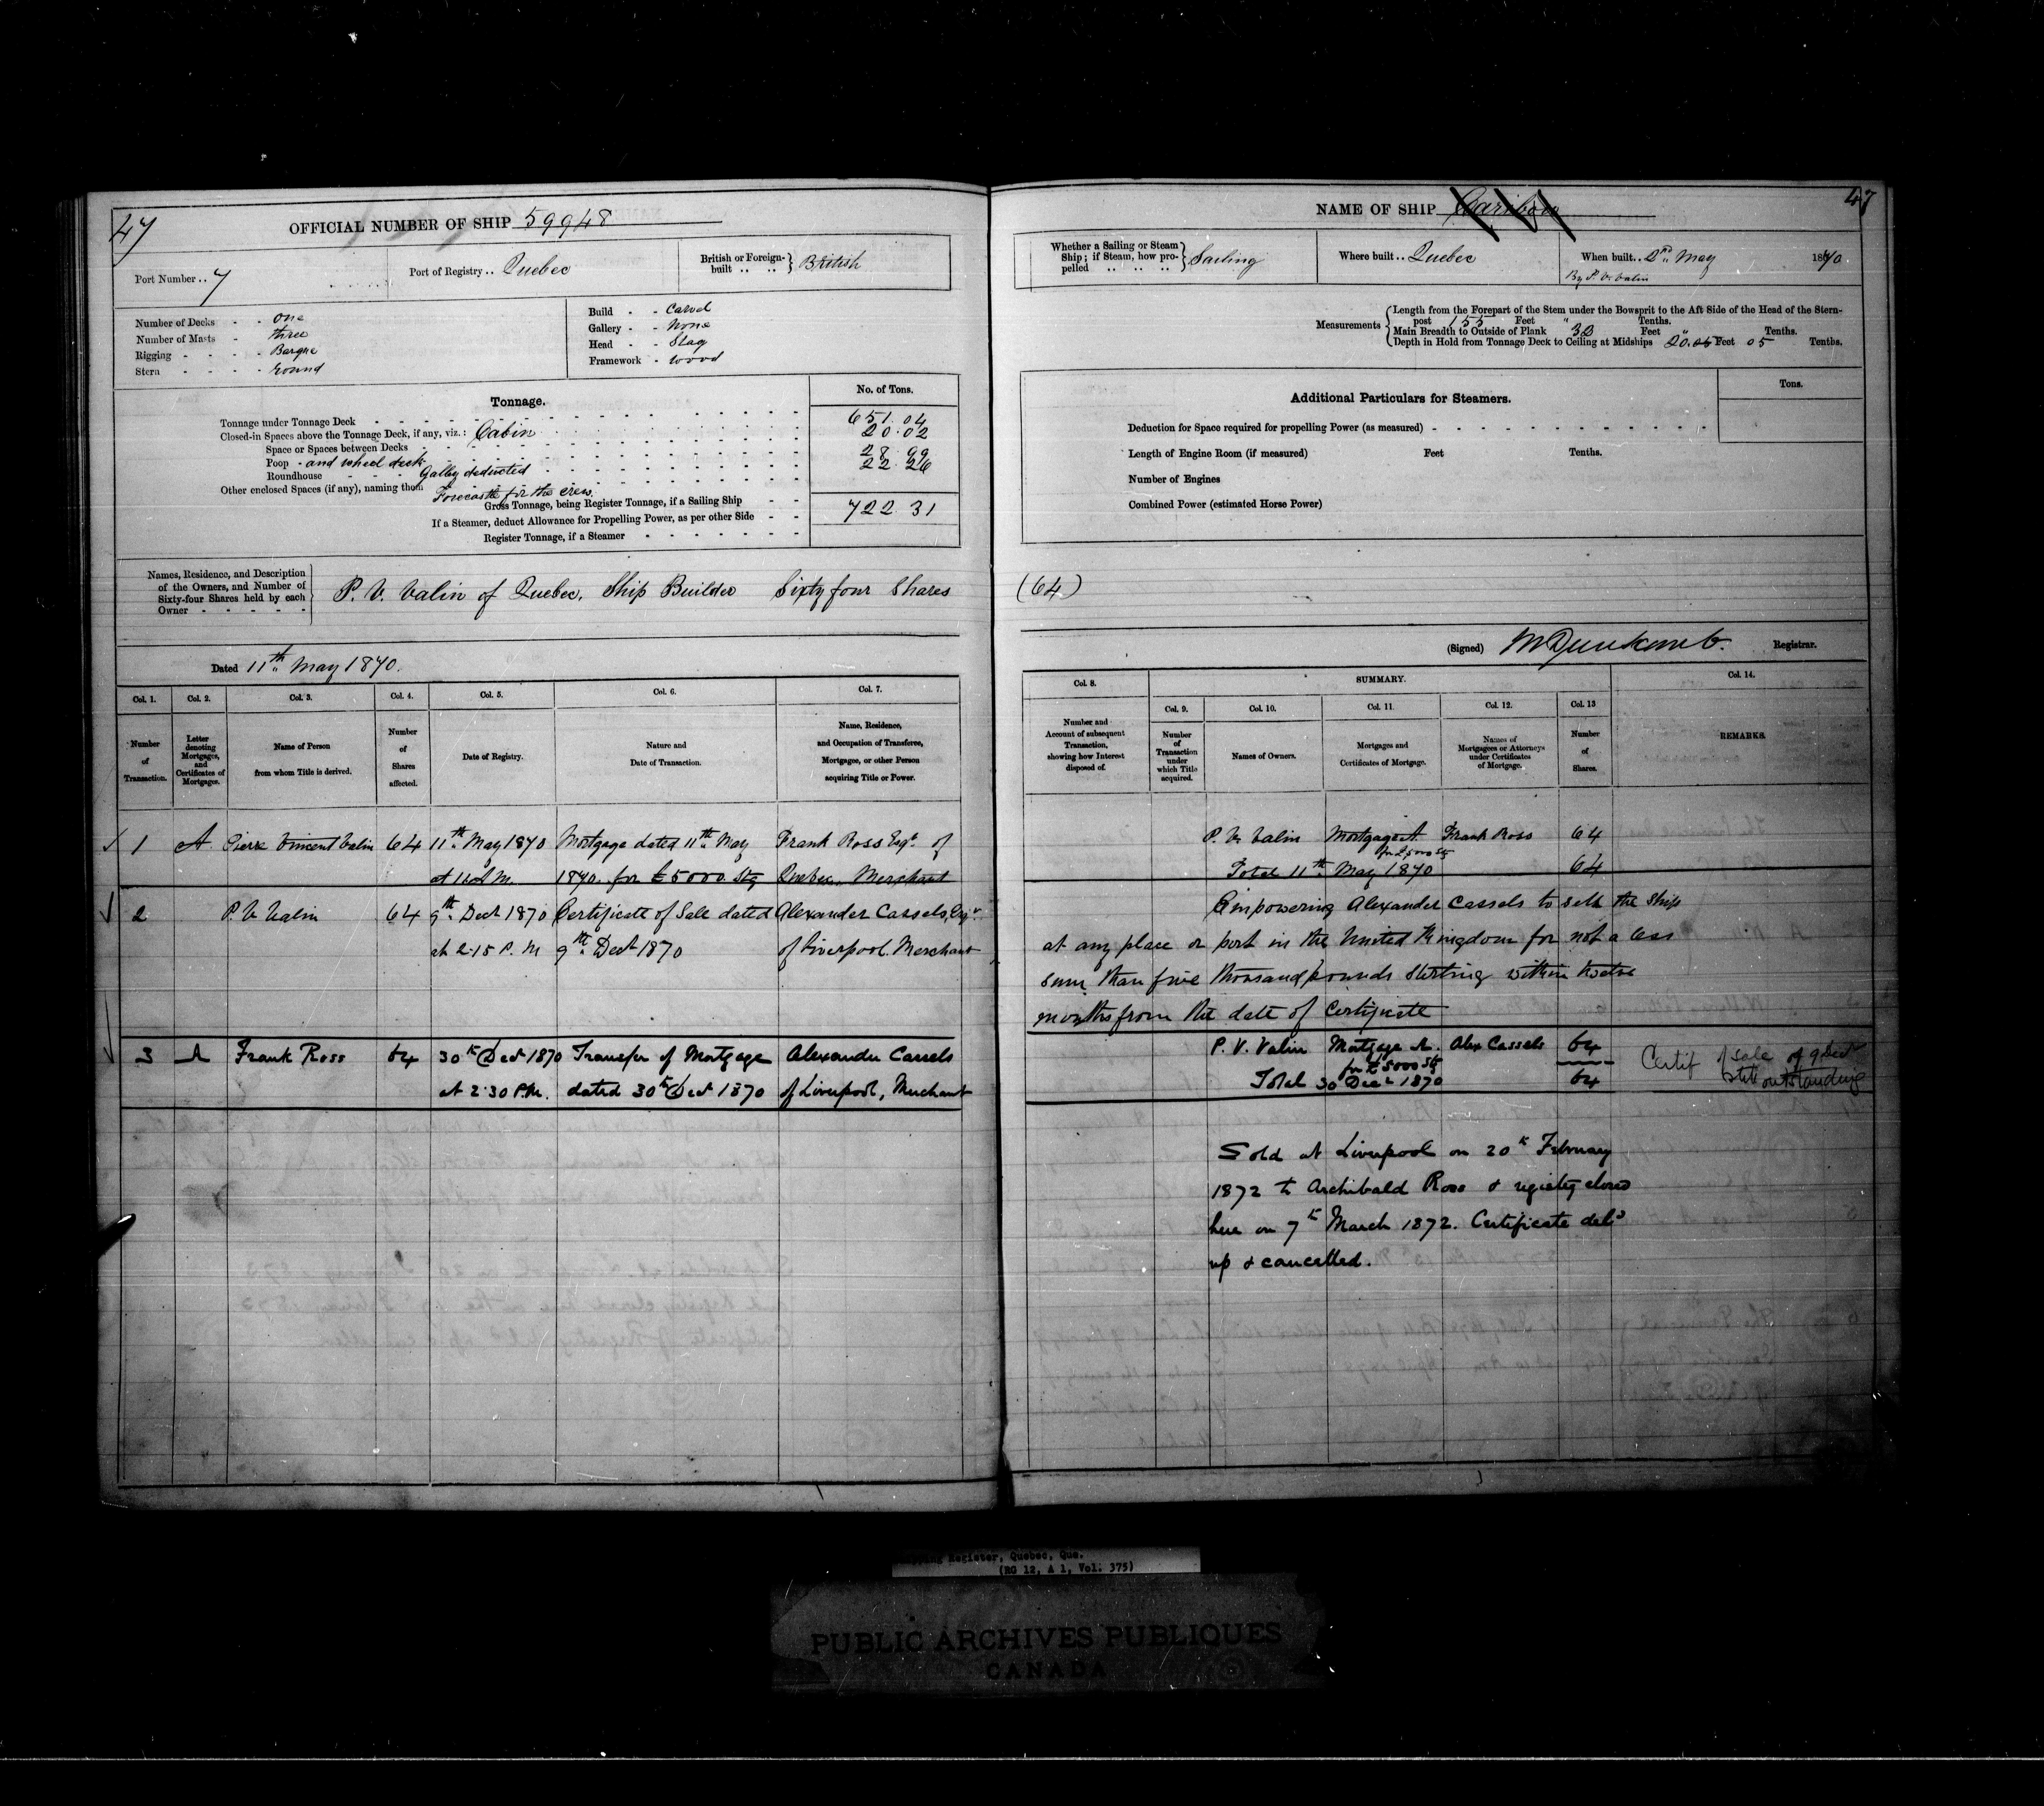 47
OFFICIAL NUMBER OF SHIP 59948
Port Number .. 7
Port of Registry .. Quebec
British or Foreign-built .. .. } British
Number of Decks - - one
Number of Masts - three
Rigging - - - - Barque
Stern - - - - round
Build - - Carvel
Gallery - - None
Head - - Stag
Framework - wood
Tonnage.
No. of Tons.
Tonnage under Tonnage Deck 651.04
Closed-in Spaces above the Tonnage Deck, if any, viz.: Cabin 20.02
Space or Spaces between Decks
Poop - and wheel deck 28.99
Roundhouse - Galley deducted 22.26
Other enclosed Spaces (if any), naming them Forecastle for the crew
Gross Tonnage, being Register Tonnage, if a Sailing Ship 722.31
If a Steamer, deduct Allowance for Propelling Power, as per other Side
Register Tonnage, if a Steamer
Names, Residence, and Description of the Owners, and Number of Sixty-four Shares held by each Owner
P. V. Valin of Quebec, Ship Builder Sixty four Shares
Dated 11th May 1870.
Col. 1. Col. 2. Col. 3. Col. 4. Col. 5. Col. 6. Col. 7.
Number of Transaction.
Letter denoting Mortgages, and Certificates of Mortgages.
Name of Person from whom Title is derived.
Number of Shares affected.
Date of Registry.
Nature and Date of Transaction.
Name, Residence, and Occupation of Transferee, Mortgagee, or other Person acquiring Title or Power.
1 A Pierre Vincent Valin 64 11th May 1870 Mortgage dated 11th May Frank Ross Esqr of
1870. for £5000. Stg Quebec. Merchant
2 P. V. Valin 64 9th Decr 1870 Certificate of Sale dated Alexander Cassels, Esqr
at 2.15 P. M 9th Decr 1870 of Liverpool. Merchant
3 A Frank Ross 64 30th Decr 1870 Transfer of Mortgage Alexander Cassels
at 2.30 P.M. dated 30th Decr 1870 of Liverpool, Merchant
47
NAME OF SHIP Caribou
Whether a Sailing or Steam Ship; if Steam, how propelled .. .. .. } Sailing
Where built .. Quebec
When built .. May 1870.
By P. V. Valin
Measurements
Length from the Forepart of the Stem under the Bowsprit to the Aft Side of the Head of the Stern-
post 155 Feet " Tenths.
Main Breadth to Outside of Plank Feet " Tenths.
Depth in Hold from Tonnage Deck to Ceiling at Midships 20.05 Feet 05 Tenths.
Tons.
Additional Particulars for Steamers.
Deduction for Space required for propelling Power (as measured)
Length of Engine Room (if measured) Feet Tenths.
Number of Engines
Combined Power (estimated Horse Power)
(64)
(Signed) Registrar.
Col. 8. SUMMARY. Col. 14.
Col. 9. Col. 10. Col. 11. Col. 12. Col. 13
Number and Account of subsequent Transaction, showing how Interest disposed of.
Number of Transaction under which Title acquired.
Names of Owners.
Mortgages and Certificates of Mortgage.
Names of Mortgagees or Attorneys under Certificates of Mortgage.
Number of Shares.
REMARKS.
P. V. Valin Mortgage A Frank Ross 64
for £5000 Stg
Total 11th May 1870 64
Empowering Alexander Cassels to sell the ship
at any place or port in the United Kingdom for not a less
sum than five thousand pounds sterling within twelve
months from the date of Certificate
P. V. Valin Mortgage A. Alex Cassels 64
for £5000 Stg
Total 30 Decr 1870 64
Certif of sale of 9 Decr
still outstanding
Sold at Liverpool on 20th February
1872 to Archibald Ross & registry closed
here on 7th March 1872. Certificate deld
up & cancelled.
Register, Quebec, Que.
(RG 12, A 1, Vol. 375)
PUBLIC ARCHIVES PUBLIQUES
CANADA